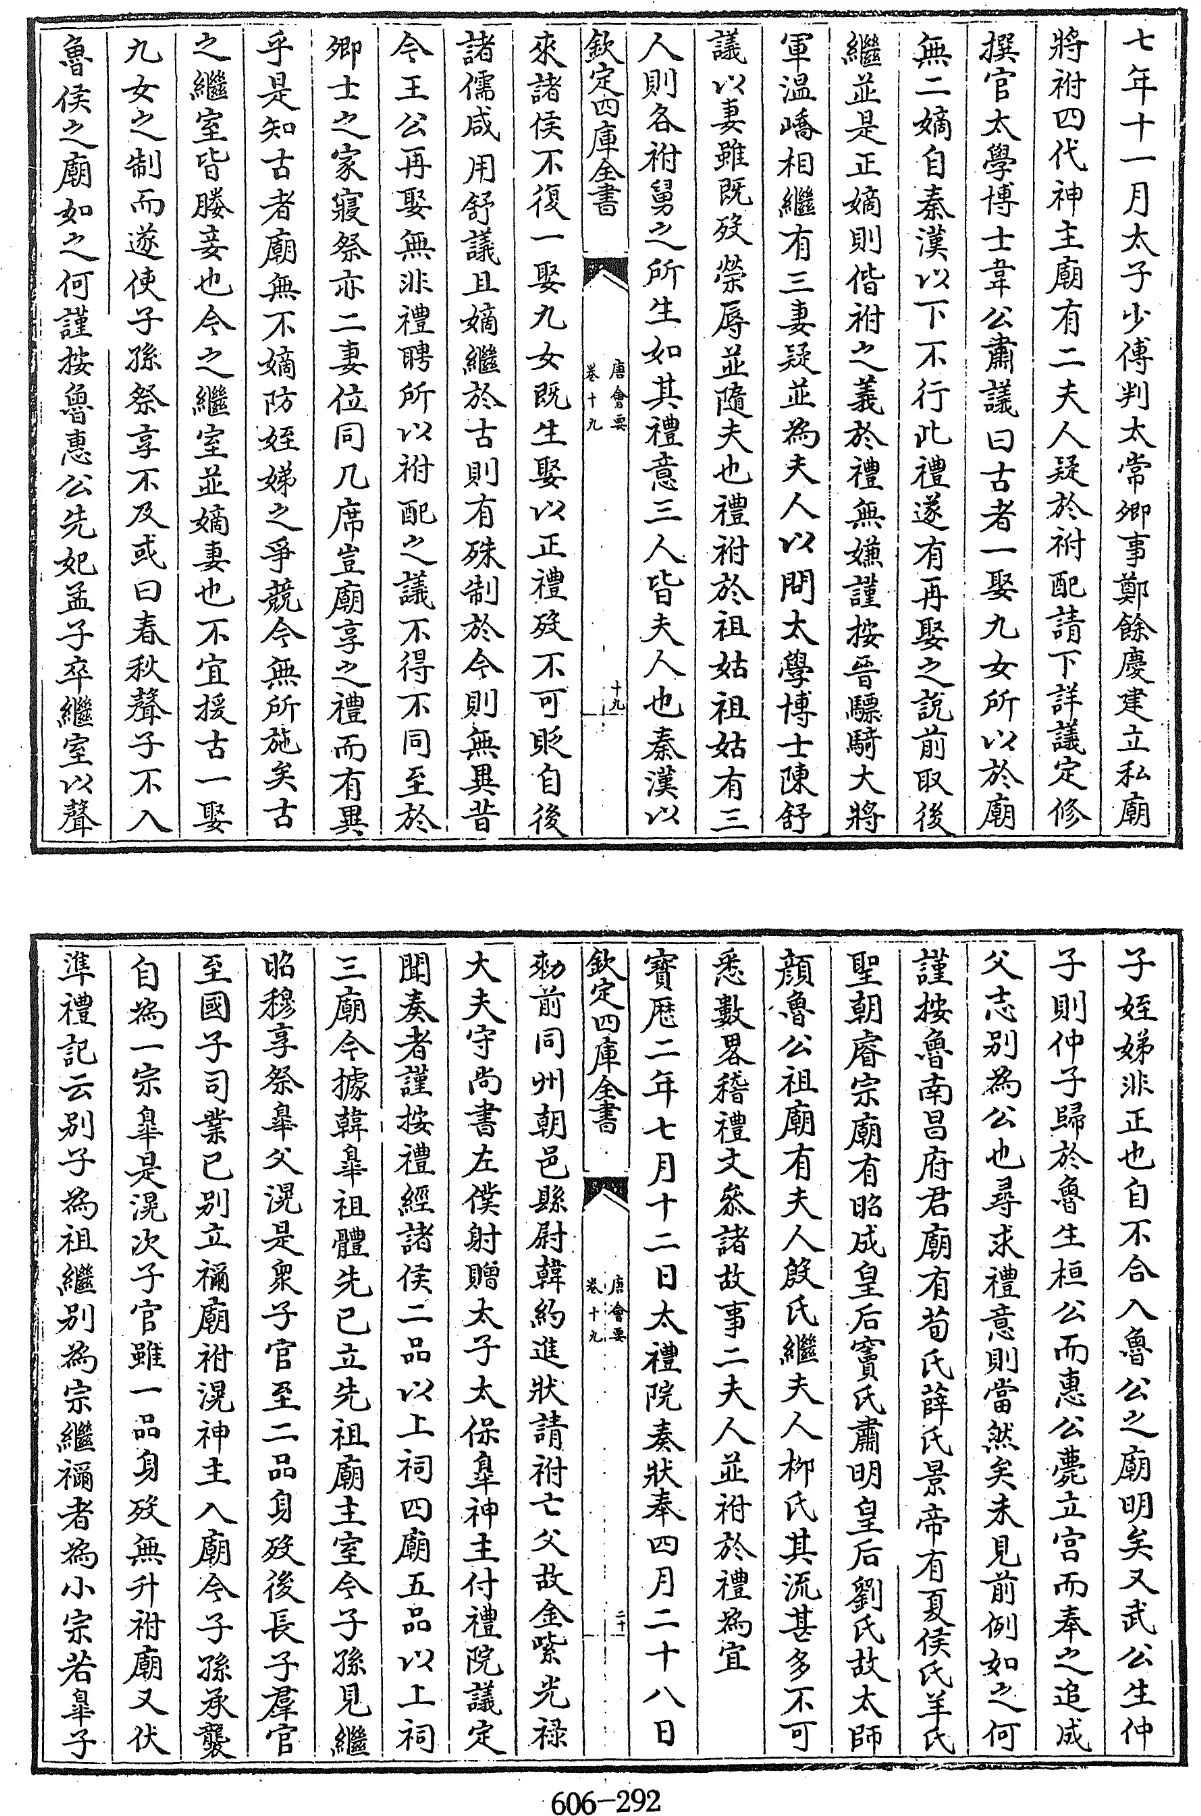 七年十一月太子少傅判太常卿事鄭餘慶建立私廟
將祔四代神主廟有二夫人疑於祔配請下詳議定修
撰官太學博士韋公肅議曰古者一娶九女所以於廟
無二嫡自秦漢以下不行此禮遂有再娶之說前取後
繼並是正嫡則偕祔之義於禮無嫌謹按晉驃騎大將
軍温嶠相繼有三妻疑並為夫人以問太學博士陳舒
議以妻雖既歿榮辱並隨夫也禮祔於祖姑祖姑有三
人則各祔舅之所生如其禮意三人皆夫人也秦漢以
欽定四庫全書
唐會要
卷十九
十九
來諸侯不復一娶九女既生娶以正禮歿不可貶自後
諸儒咸用舒議且嫡繼於古則有殊制於今則無異昔
今王公再娶無非禮聘所以祔配之議不得不同至於
卿士之家寢祭亦二妻位同几席豈廟享之禮而有異
乎是知古者廟無不嫡防姪娣之爭競今無所施矣古
之繼室皆媵妾也今之繼室並嫡妻也不宜援古一娶
九女之制而遂使子孫祭享不及或曰春秋聲子不入
魯侯之廟如之何謹按魯惠公先妃孟子卒繼室以聲
子姪娣非正也自不合入魯公之廟明矣又武公生仲
子則仲子歸於魯生桓公而惠公薨立宫而奉之追成
父志別為公也尋求禮意則當然矣未見前例如之何
謹按魯南昌府君廟有荀氏薛氏景帝有夏侯氏羊氏
聖朝睿宗廟有昭成皇后竇氏肅明皇后劉氏故太師
顔魯公祖廟有夫人殷氏繼夫人栁氏其流甚多不可
悉數畧稽禮文叅諸故事二夫人並祔於禮為宜
寳厯二年七月十二日太禮院奏狀奉四月二十八日
欽定四庫全書
唐會要
卷十九
二十
勅前同州朝邑縣尉韓約進狀請祔亡父故金紫光祿
大夫守尚書左僕射贈太子太保臯神主付禮院議定
聞奏者謹按禮經諸侯二品以上祠四廟五品以上祠
三廟今據韓臯祖體先已立先祖廟主室今子孫見繼
昭穆享祭臯父滉是衆子官至二品身歿後長子羣官
至國子司業已別立禰廟祔滉神主入廟今子孫承襲
自為一宗臯是滉次子官雖一品身歿無升祔廟又伏
準禮記云別子為祖繼別為宗繼禰者為小宗若臯子
606-292